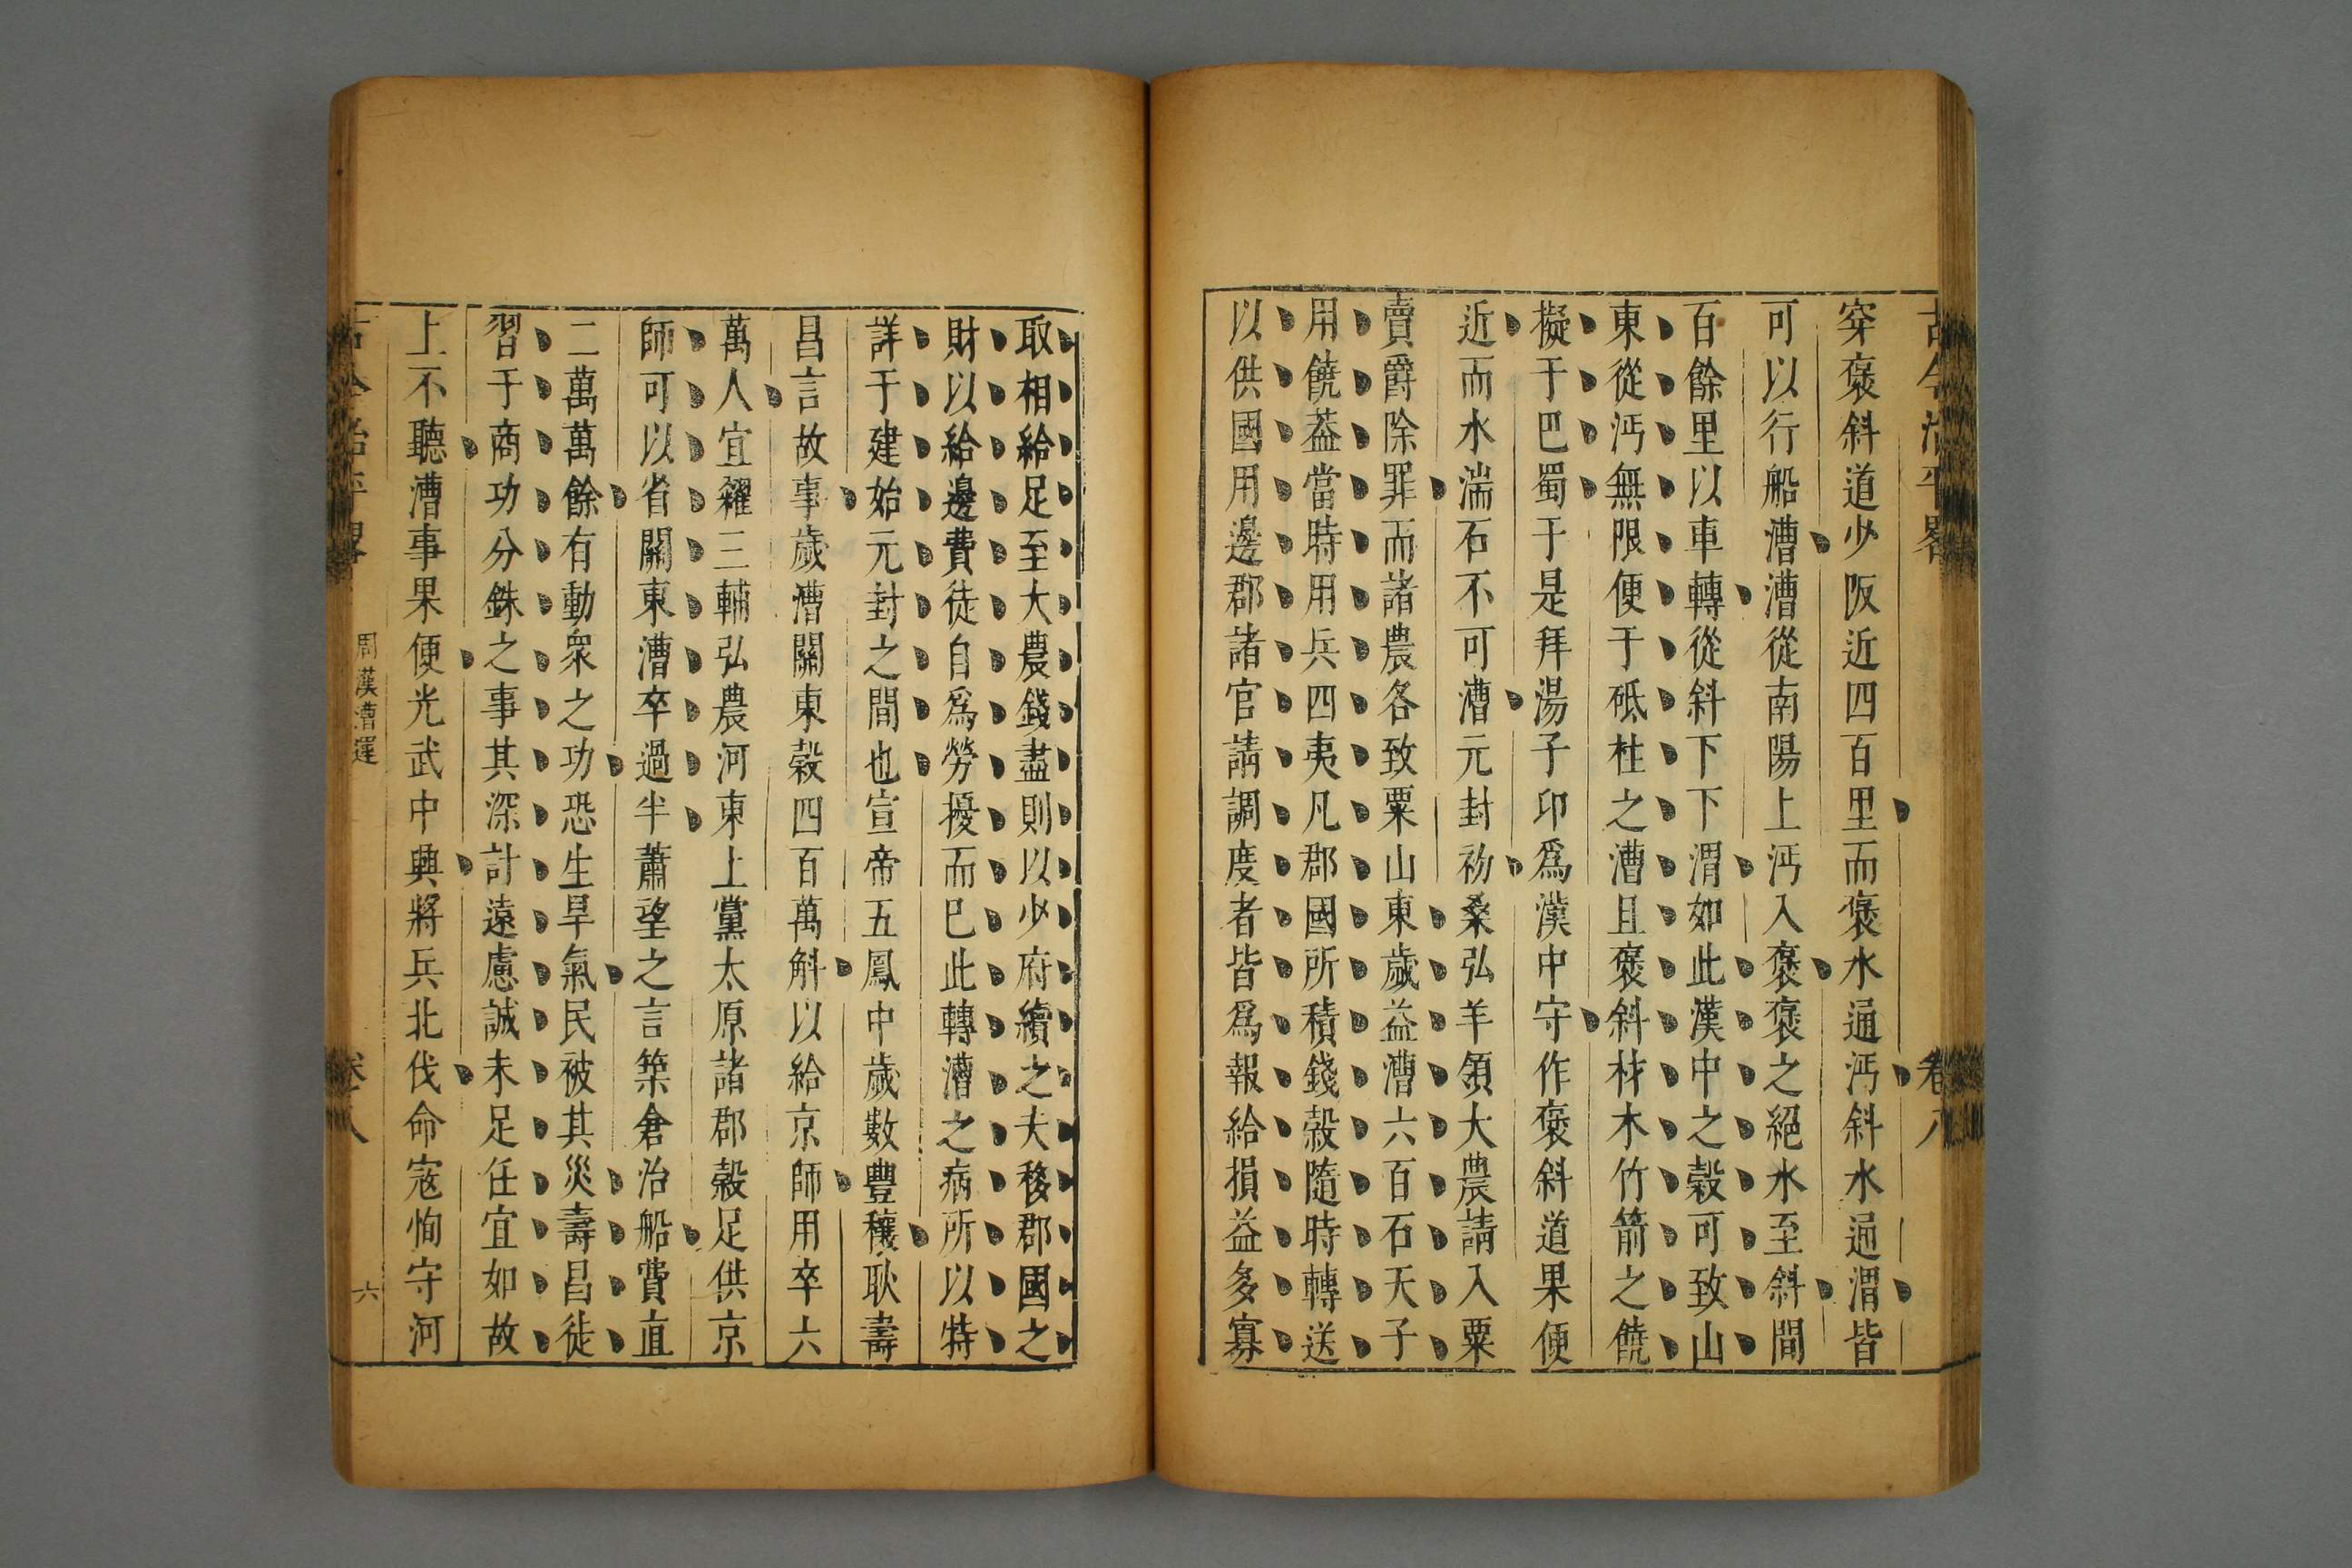 古今治平畧
卷八
穿褒斜道少阪近四百里而褒水通沔斜水通渭皆
可以行船漕漕從南陽上沔入褒褒之絕水至斜間
百餘里以車轉從斜下下渭如此漢中之穀可致山
東從沔無限便于砥柱之漕且褒斜材木竹箭之饒
擬于巴蜀于是拜湯子卬爲漢中守作褒斜道果便
近而水湍石不可漕元封初桑弘羊領大農請入粟
賣爵除罪而諸農各致粟山東歲益漕六百石天子
用饒葢當時用兵四夷凡郡國所積錢穀隨時轉送
以供國用邊郡諸官請調度者皆爲報給損益多寡
取相給足至大農錢盡則以少府續之夫移郡國之
財以給邊費徒自爲勞擾而巳此轉漕之病所以特
詳于建始元封之間也宣帝五鳳中歲數豐穰耿壽
昌言故事歲漕關東穀四百萬斛以給京師用卒六
萬人宜糴三輔弘農河東上黨太原諸郡穀足供京
師可以省關東漕卒過半蕭望之言築倉治船費直
二萬萬餘有動衆之功恐生旱氣民被其災壽昌徒
習于商功分銖之事其深計遠慮誠未足任宜如故
上不聽漕事果便光武中興將兵北伐命寇恂守河
古今治平畧
周漢漕運
卷八
六